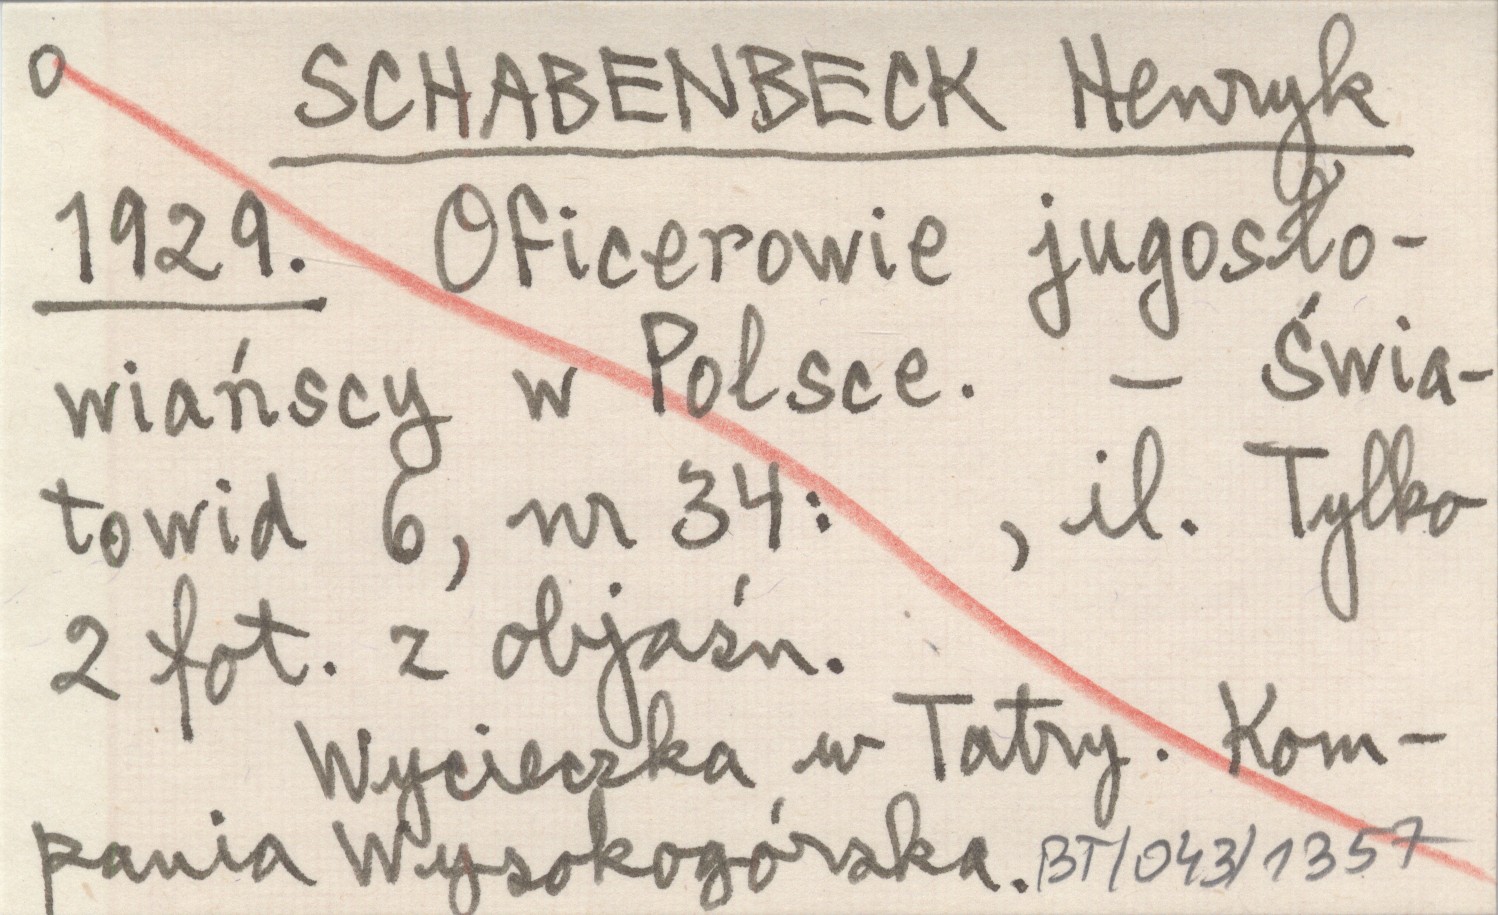 o SCHABENBECK Henryk
1929. Oficerowie jugosło-
wiańscy w Polsce. – Świa-
towid 6, nr 34: , il. Tylko
2 fot. z objaśn.
Wycieczka w Tatry. Kom-
pania Wysokogórska. BT/043/1357